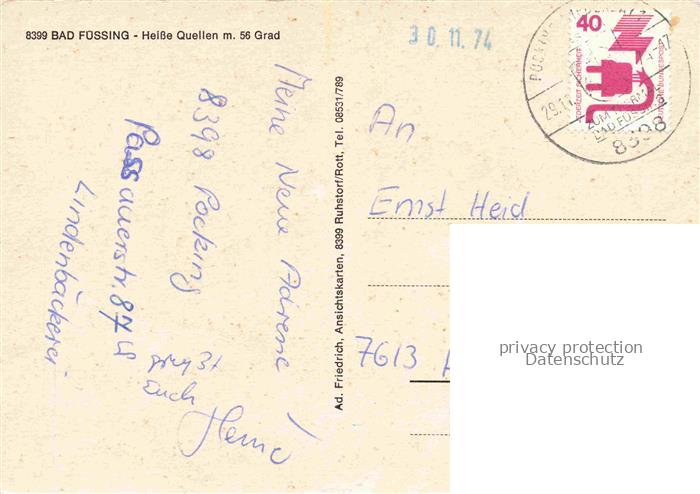 8399 BAD FÜSSING - Heiße Quellen m. 56 Grad
Meine Neue Adresse!
8398 Pocking
Passauerstr. 87
Lindenbäckerei
grüßt
Euch
Heinz
Ad. Friedrich, Ansichtskarten, 8399 Ruhstorf/Rott, Tel. 08531/789
30.11.74
40
JEDERZEIT SICHERHEIT
DEUTSCHE BUNDESPOST
POCKING
29.11
ZUM THERMALBAD
BAD FÜSSING
8398
An
Ernst Heid
7613
privacy protection
Datenschutz